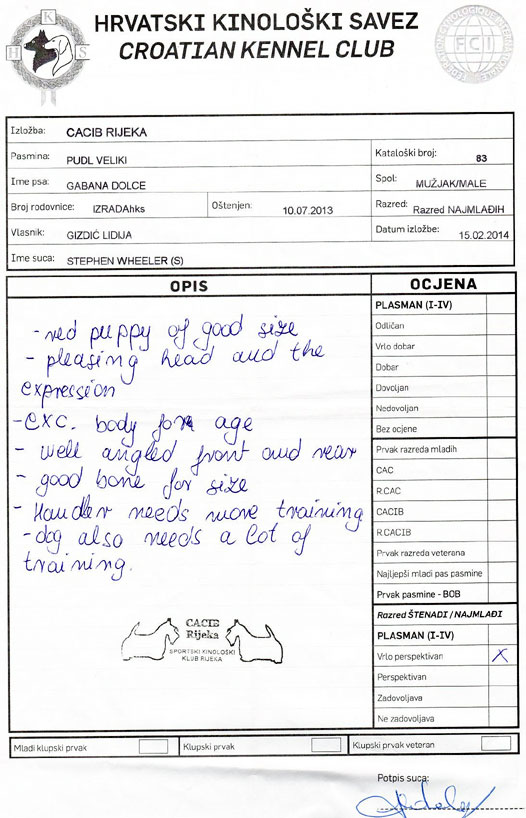 HRVATSKI KINOLOŠKI SAVEZ
CROATIAN KENNEL CLUB
K
H S
FCI
Izložba: CACIB RIJEKA
Pasmina: PUDL VELIKI
Kataloški broj: 83
Ime psa: GABANA DOLCE
Spol: MUŽJAK/MALE
Broj rodovnice: IZRADAhks
Oštenjen: 10.07.2013
Razred: Razred NAJMLAĐIH
Vlasnik: GIZDIĆ LIDIJA
Datum izložbe: 15.02.2014
Ime suca: STEPHEN WHEELER (S)
OPIS
- red puppy of good size
- pleasing head and the
expression
- exc. body for age
- well angled front and rear
- good bone for size
- Handler needs more training
- dog also needs a lot of
training.
CACIB
Rijeka
SPORTSKI KINOLOŠKI
KLUB RIJEKA
OCJENA
PLASMAN (I-IV)
Odličan
Vrlo dobar
Dobar
Dovoljan
Nedovoljan
Bez ocjene
Prvak razreda mladih
CAC
R.CAC
CACIB
R.CACIB
Prvak razreda veterana
Najljepši mladi pas pasmine
Prvak pasmine - BOB
Razred ŠTENADI / NAJMLAĐI
PLASMAN (I-IV)
Vrlo perspektivan X
Perspektivan
Zadovoljava
Ne zadovoljava
Mladi klupski prvak
Klupski prvak
Klupski prvak veteran
Potpis suca: